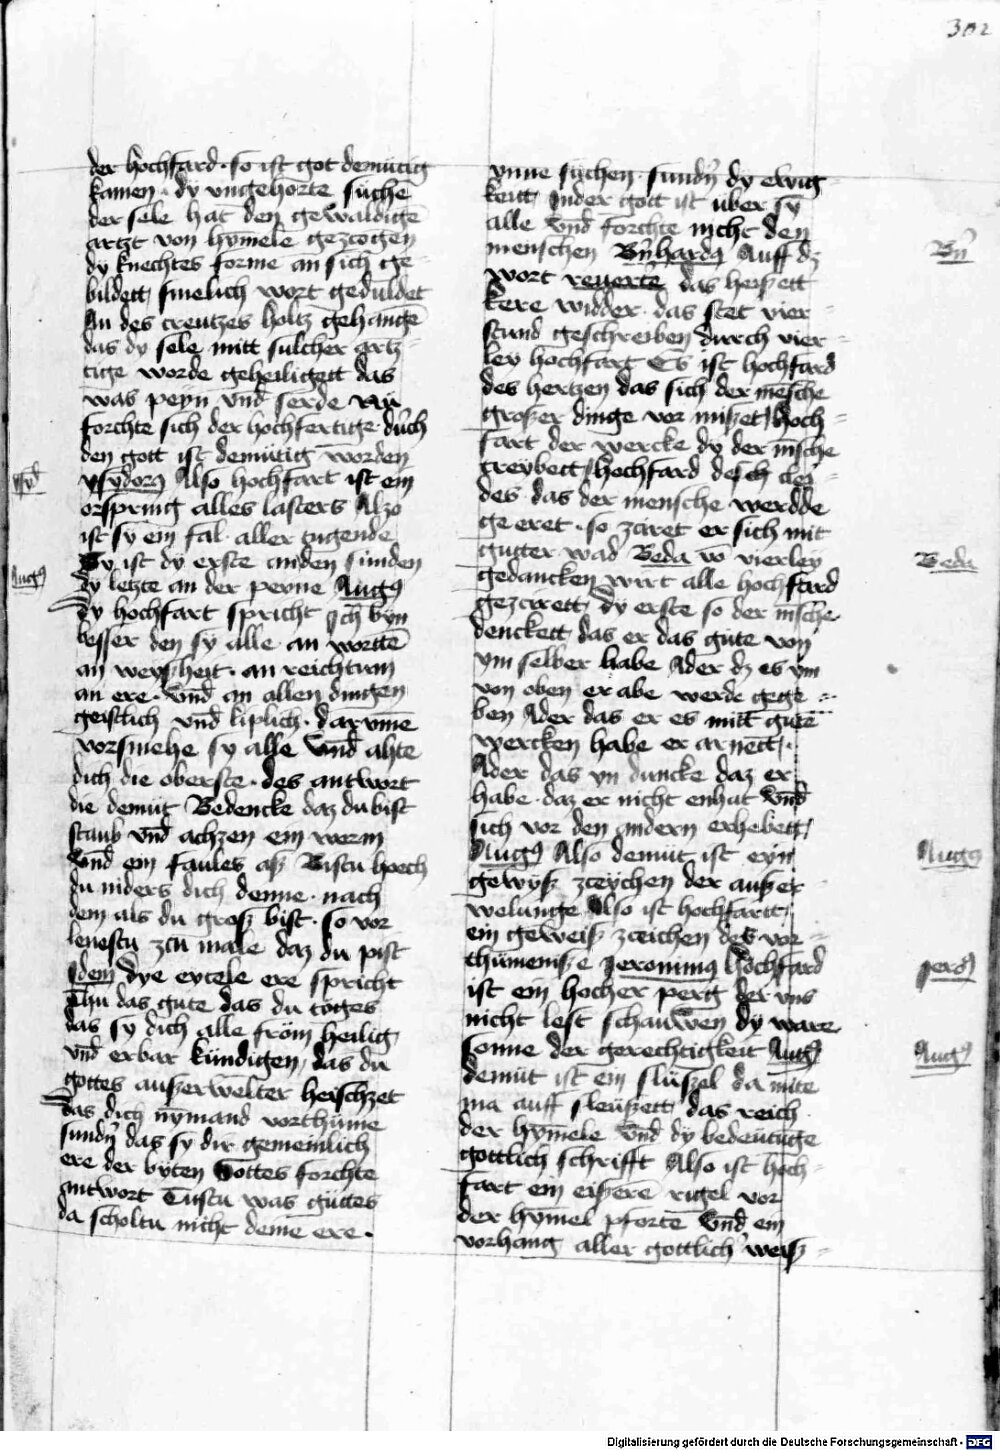 302
der hochfard · so ist got demütig
kamen · dÿ ungehorte süche
der sele hat den gewaldigē
artzt von hymele gezcogen
dÿ knechtes forme an sich ge-
bildett smelich wort geduldet
An des creutzes holtz gehangē
das dÿ sele mitt sulcher ertz-
tige worde geheiligett das
was peyn vnd serde Nü
forchte sich der hochfertige durch
den gott ist demütig worden
ysidorꝰ Also hochfart ist ein
orspring alles lasters Alzo
ist sÿ ein fal aller tugende
Sy ist dÿ erste anden sunden
dÿ letzte an der peyne Augꝰ
dÿ hochfart spricht Ich byn
besser den sÿ alle · an wortē
an weysheit · an reichtum
an ere · vnd an allen dingen
geistlich vnd liplich · darvmē
vorsmehe sÿ alle vnd ahte
dich die oberste · des antwort
die demüt Bedencke daz du bist
staub vnd aschzen ein worm
vnd ein faules aß Bistu hoech
du niders dich denne · nach
dem als du groß bist · so vor
leuestu zcu male daz du pist
Idem dye eytele ere spricht
Thu das gute das du toges
das sy dich alle fröm heilig
vnd erbar kündigen, das du
gottes außerwelter heischzet
das dich nymand vorthüme
sundn̄ das sÿ dir gemeinlich
ere der byten Gottes forchte
antwort Tustu was guttes
da scholtu nicht deme ere ·
ynne süchen · sundn̄ dÿ ewig-
keitt Inder gott ist uber sÿ
alle vnd forchte nicht den
menschen Bn̄hardꝰ Auff dz
wort reuerte das heißett
kere widder · das stet vier-
stund geschreiben durch vier-
ley hochfart Es ist hochfard
des hertzen das sich der mēsche
großer dinge vor mißet hoch-
fart der wercke dÿ der mēsche
treybett hochfard desch clei-
des · das der mensche werdde
ge eret · so zciret er sich mit
gutter wad Beda vō vierley
gedancken wirt alle hochfard
gezcirett dÿ erste so der mēsche
denckett das er das gute von
ym selber habe Ader dz es ym
von oben er abe werde gege-
ben Ader das er es mitt gutē
wercken habe er arnett ·
Ader das yn duncke daz er
habe · daz er nicht enhat vnd
sich vor den andern erhebett
Augꝰ Also demüt ist eyn
gewyß zceychen der außer-
welunge Also ist hochfartt
ein geweiß zceichen des vor-
thümeniße Jeronimꝰ Hochfard
ist ein hocher perg der vns
nicht lest schauwen dÿ ware
sonne der gerechtigkeit Augꝰ
demüt ist ein slüßel da mite
ma auff sleüßett das reich
der hymele vnd dÿ bedeütuge
gottlich schrifft Also ist hoch-
fart ein eißere rigel vor
der hymel pfortē vnd ein
vorhang aller gottlich weiß-
ysid
Augꝰ
Bn̄
Beda
Augꝰ
Jerōꝰ
Augꝰ
Digitalisierung gefördert durch die Deutsche Forschungsgemeinschaft - DFG